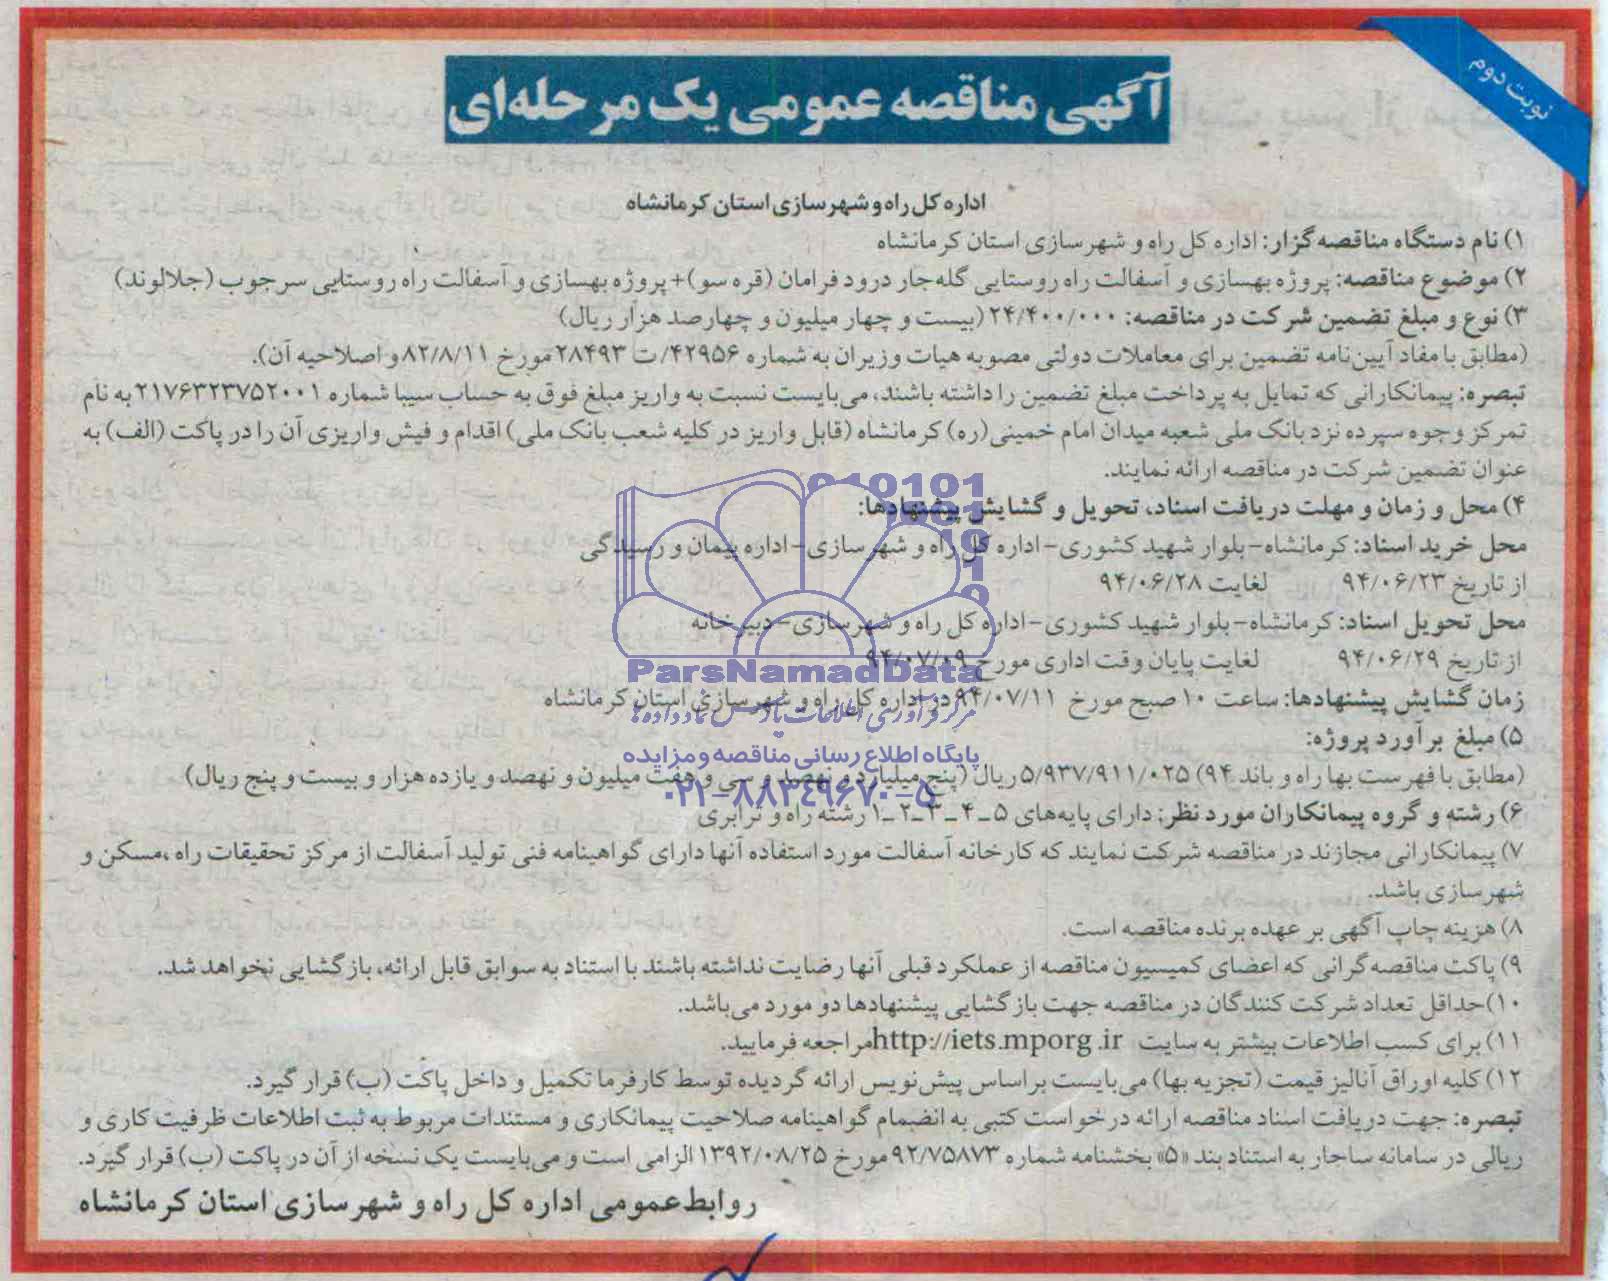 نوبت دوم
آگهی مناقصه عمومی یک مرحله‌ای
اداره کل راه و شهرسازی استان کرمانشاه
۱) نام دستگاه مناقصه گزار: اداره کل راه و شهرسازی استان کرمانشاه
۲) موضوع مناقصه: پروژه بهسازی و آسفالت راه روستایی گله جار درود فرامان (قره سو)+ پروژه بهسازی و آسفالت راه روستایی سرجوب (جلالوند)
۳) نوع و مبلغ تضمین شرکت در مناقصه: ۲۴/۴۰۰/۰۰۰ (بیست و چهار میلیون و چهارصد هزار ریال)
(مطابق با مفاد آیین‌نامه تضمین برای معاملات دولتی مصوبه هیات وزیران به شماره ۴۲۹۵۶/ ت ۲۸۴۹۳ مورخ ۸۲/۸/۱۱ و اصلاحیه آن).
تبصره: پیمانکارانی که تمایل به پرداخت مبلغ تضمین را داشته باشند، می‌بایست نسبت به واریز مبلغ فوق به حساب سیبا شماره ۲۱۷۶۳۲۳۷۵۲۰۰۱ به نام
تمرکز وجوه سپرده نزد بانک ملی شعبه میدان امام خمینی(ره) کرمانشاه (قابل واریز در کلیه شعب بانک ملی) اقدام و فیش واریزی آن را در پاکت (الف) به
عنوان تضمین شرکت در مناقصه ارائه نمایند.
۴) محل و زمان و مهلت دریافت اسناد، تحویل و گشایش پیشنهادها:
محل خرید اسناد: کرمانشاه- بلوار شهید کشوری- اداره کل راه و شهرسازی- اداره پیمان و رسیدگی
از تاریخ ۹۴/۰۶/۲۳ لغایت ۹۴/۰۶/۲۸
محل تحویل اسناد: کرمانشاه- بلوار شهید کشوری- اداره کل راه و شهرسازی- دبیرخانه
از تاریخ ۹۴/۰۶/۲۹ لغایت پایان وقت اداری مورخ ۹۴/۰۷/۰۹
ParsNamadData
زمان گشایش پیشنهادها: ساعت ۱۰ صبح مورخ ۹۴/۰۷/۱۱ در اداره کل راه و شهرسازی استان کرمانشاه
مرکز فرآوری اطلاعات پارس نماد داده‌ها
۵) مبلغ برآورد پروژه:
پایگاه اطلاع رسانی مناقصه و مزایده
(مطابق با فهرست بها راه و باند ۹۴) ۵/۹۳۷/۹۱۱/۰۲۵ ریال (پنج میلیارد و نهصد و سی و هفت میلیون و نهصد و یازده هزار و بیست و پنج ریال)
۰۲۱-۸۸۳۴۹۶۷۰-۵
۶) رشته و گروه پیمانکاران مورد نظر: دارای پایه‌های ۵ـ ۴ـ ۳ـ ۲ـ ۱ رشته راه و ترابری
۷) پیمانکارانی مجازند در مناقصه شرکت نمایند که کارخانه آسفالت مورد استفاده آنها دارای گواهینامه فنی تولید آسفالت از مرکز تحقیقات راه ،مسکن و
شهرسازی باشد.
۸) هزینه چاپ آگهی بر عهده برنده مناقصه است.
۹) پاکت مناقصه گرانی که اعضای کمیسیون مناقصه از عملکرد قبلی آنها رضایت نداشته باشند با استناد به سوابق قابل ارائه، بازگشایی نخواهد شد.
۱۰)حداقل تعداد شرکت کنندگان در مناقصه جهت بازگشایی پیشنهادها دو مورد می‌باشد.
۱۱) برای کسب اطلاعات بیشتر به سایت http://iets.mporg.ir مراجعه فرمایید.
۱۲) کلیه اوراق آنالیز قیمت (تجزیه بها) می‌بایست براساس پیش‌نویس ارائه گردیده توسط کارفرما تکمیل و داخل پاکت (ب) قرار گیرد.
تبصره: جهت دریافت اسناد مناقصه ارائه درخواست کتبی به انضمام گواهینامه صلاحیت پیمانکاری و مستندات مربوط به ثبت اطلاعات ظرفیت کاری و
ریالی در سامانه ساجار به استناد بند «۵» بخشنامه شماره ۹۲/۷۵۸۷۳ مورخ ۱۳۹۲/۰۸/۲۵ الزامی است و می‌بایست یک نسخه از آن در پاکت (ب) قرار گیرد.
روابط عمومی اداره کل راه و شهرسازی استان کرمانشاه